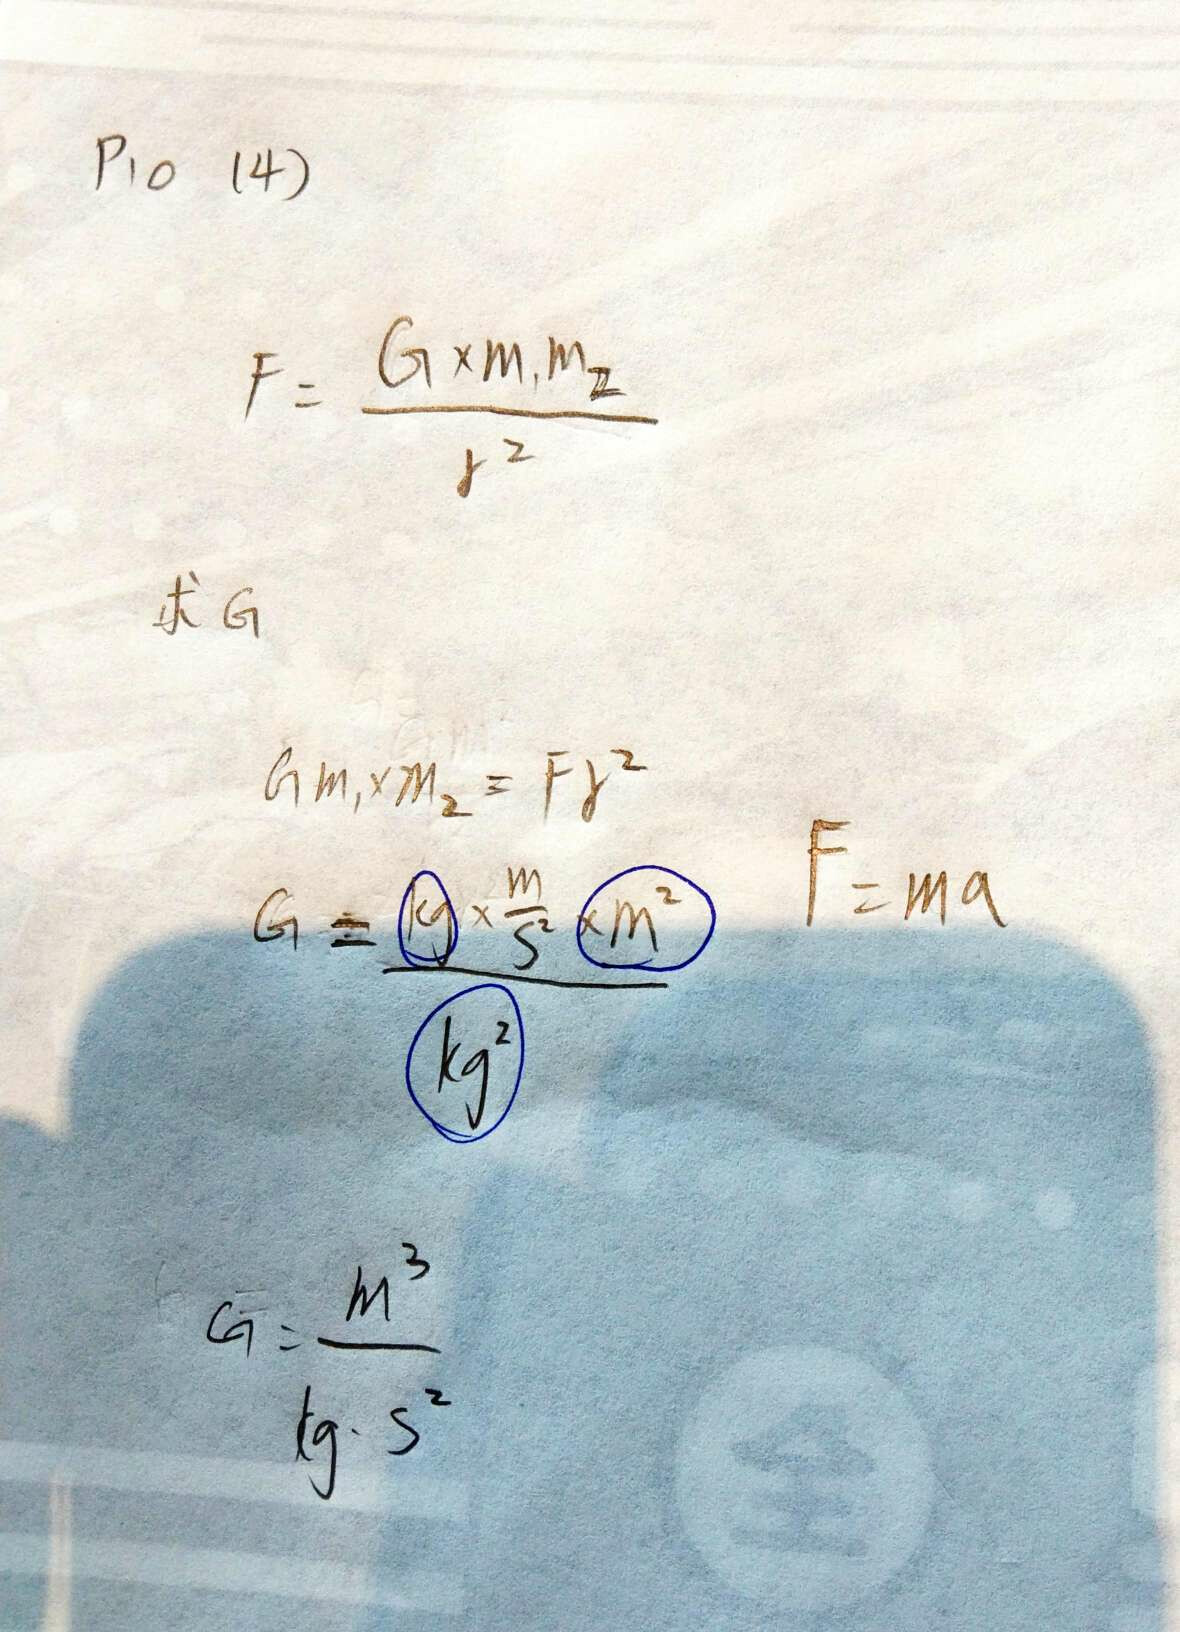 P10 (4)
F = G × m₁m₂ / r²
求 G
G m₁ × m₂ = F r²
G = kg × m/s² × m² / kg²
F = ma
G = m³ / kg · s²